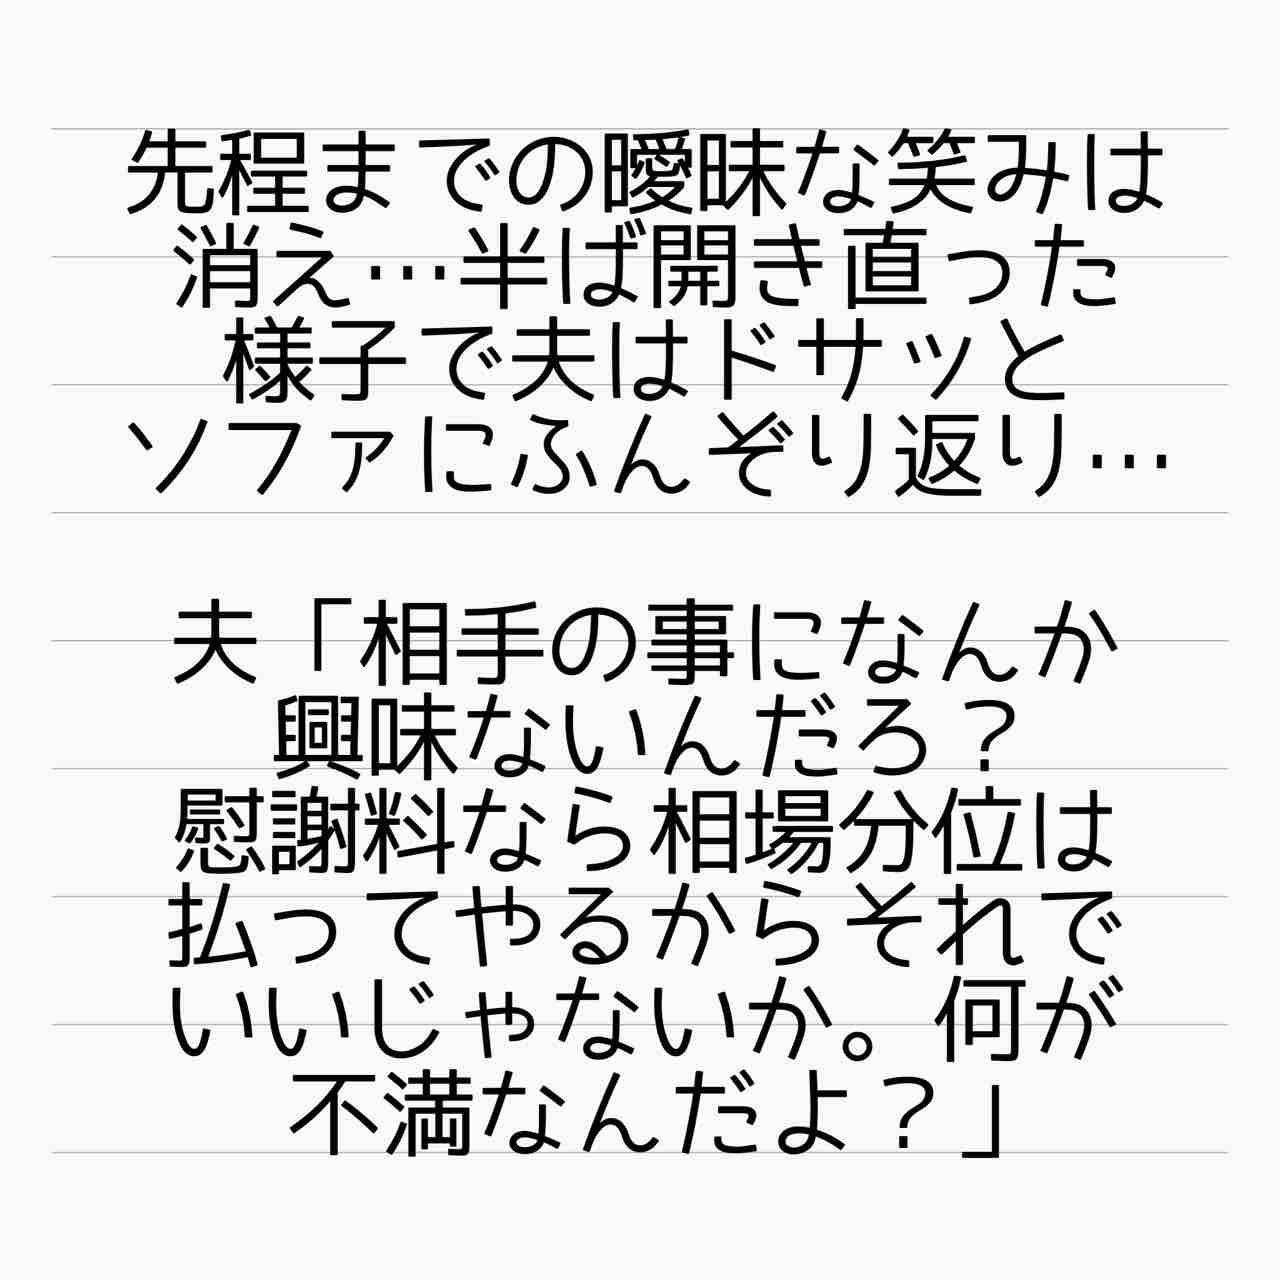 先程までの曖昧な笑みは
消え…半ば開き直った
様子で夫はドサッと
ソファにふんぞり返り…
夫「相手の事になんか
興味ないんだろ？
慰謝料なら相場分位は
払ってやるからそれで
いいじゃないか。何が
不満なんだよ？」